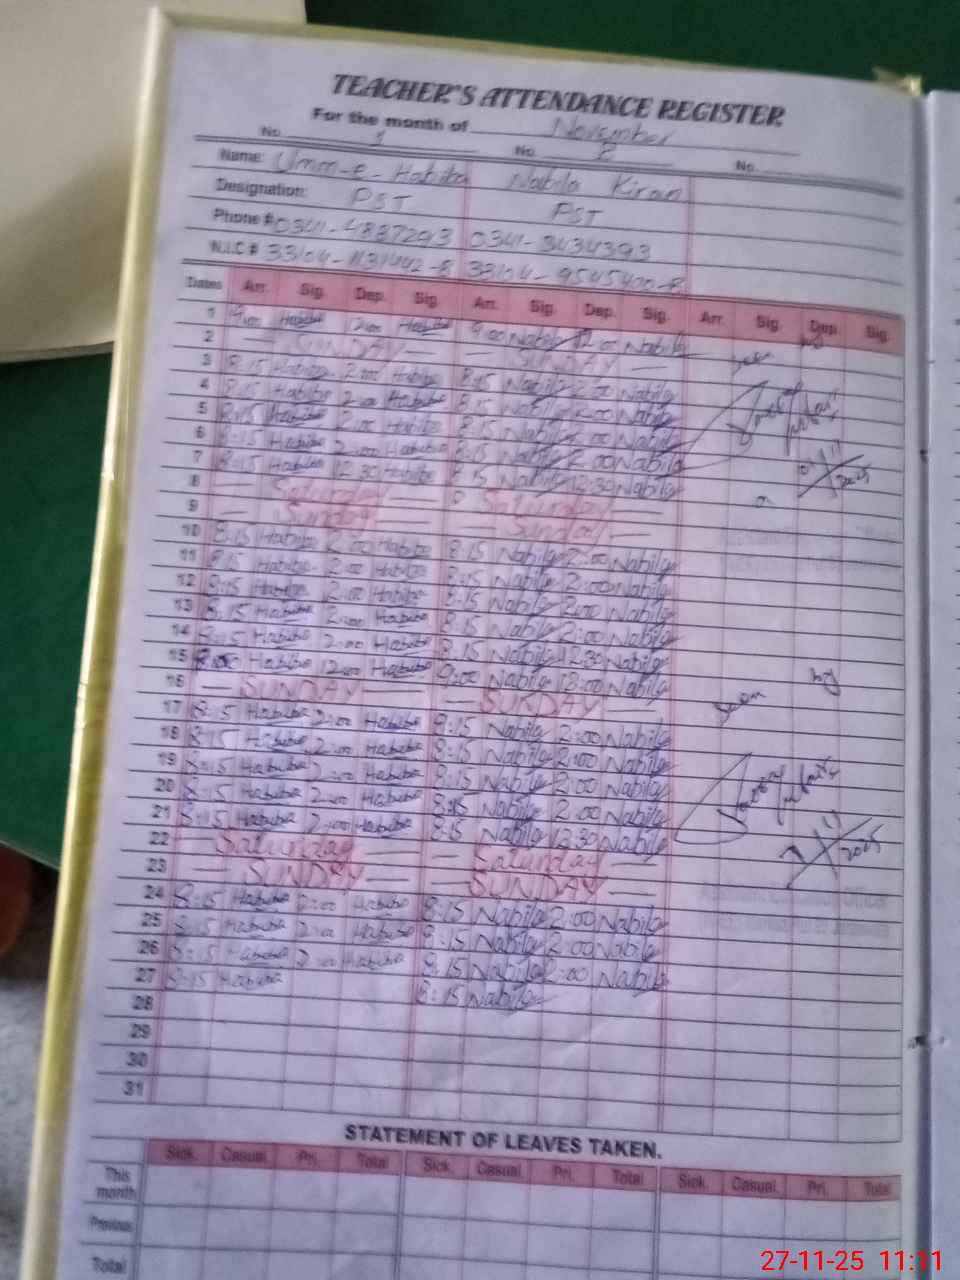 TEACHER'S ATTENDANCE REGISTER
For the month of November
No. 1 No. 2 No.
Name: Umm-e-Habiba Nabila Kiran
Designation: PST PST
Phone # 0341-4887293 0341-3434393
N.I.C # 33104-1131442-8 33104-9545400-8
Dates Arr. Sig. Dep. Sig. Arr. Sig. Dep. Sig. Arr. Sig. Dep. Sig.
1 9:00 Habiba 12:00 Habiba 9:00 Nabila 12:00 Nabila
2 — SUNDAY — — SUNDAY —
3 8:15 Habiba 2:00 Habiba 8:15 Nabila 2:00 Nabila
4 8:15 Habiba 2:00 Habiba 8:15 Nabila 2:00 Nabila
5 8:15 Habiba 2:00 Habiba 8:15 Nabila 2:00 Nabila
6 8:15 Habiba 2:00 Habiba 8:15 Nabila 2:00 Nabila
7 8:15 Habiba 12:30 Habiba 8:15 Nabila 12:30 Nabila
8 — Saturday — Saturday —
9 — Sunday — — Sunday —
10 8:15 Habiba 2:00 Habiba 8:15 Nabila 2:00 Nabila
11 8:15 Habiba 2:00 Habiba 8:15 Nabila 2:00 Nabila
12 8:15 Habiba 2:00 Habiba 8:15 Nabila 2:00 Nabila
13 8:15 Habiba 2:00 Habiba 8:15 Nabila 2:00 Nabila
14 8:15 Habiba 2:00 Habiba 8:15 Nabila 12:30 Nabila
15 Habiba 12:00 Habiba 9:00 Nabila 12:00 Nabila
16 — SUNDAY — — SUNDAY —
17 8:15 Habiba 2:00 Habiba 8:15 Nabila 2:00 Nabila
18 8:15 Habiba 2:00 Habiba 8:15 Nabila 2:00 Nabila
19 8:15 Habiba 2:00 Habiba 8:15 Nabila 2:00 Nabila
20 8:15 Habiba 2:00 Habiba 8:15 Nabila 2:00 Nabila
21 8:15 Habiba 2:00 Habiba 8:15 Nabila 12:30 Nabila
22 — Saturday — — Saturday —
23 — SUNDAY — — SUNDAY —
24 8:15 Habiba 2:00 Habiba 8:15 Nabila 2:00 Nabila
25 8:15 Habiba 2:00 Habiba 8:15 Nabila 2:00 Nabila
26 8:15 Habiba 2:00 Habiba 8:15 Nabila 2:00 Nabila
27 8:15 Habiba 8:15 Nabila
28
29
30
31
seen by
2025
Seen by
2025
STATEMENT OF LEAVES TAKEN.
Sick. Casual. Pri. Total Sick. Casual. Pri. Total Sick. Casual. Pri. Total
This month
Previous
Total
27-11-25 11:11